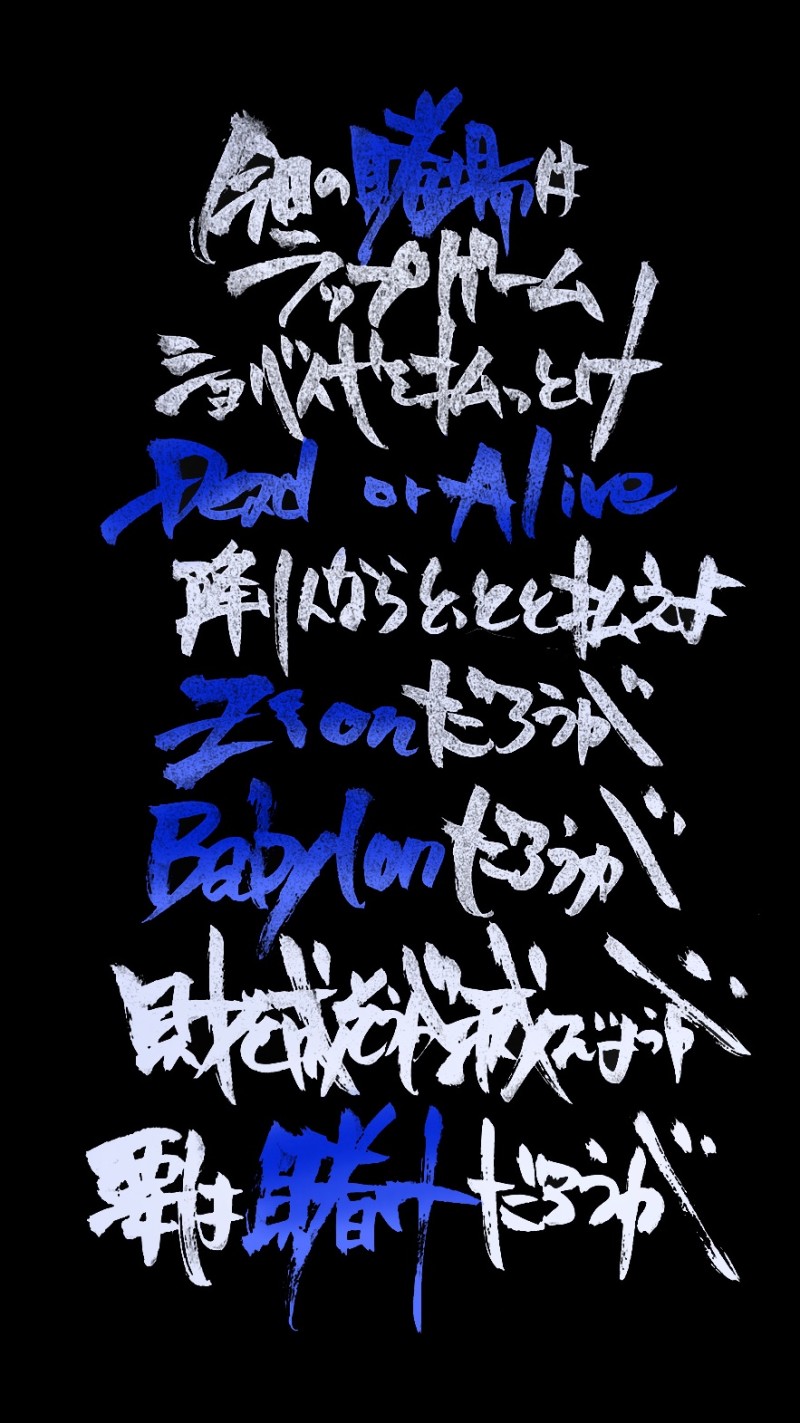 今回の賭場は
ラップゲーム
ショバ代を払っとけ
Dead or Alive
降りんならとっとと払えよ
Zionだろうが
Babylonだろうが
財を成そうが滅びようが
要は賭けだろうが